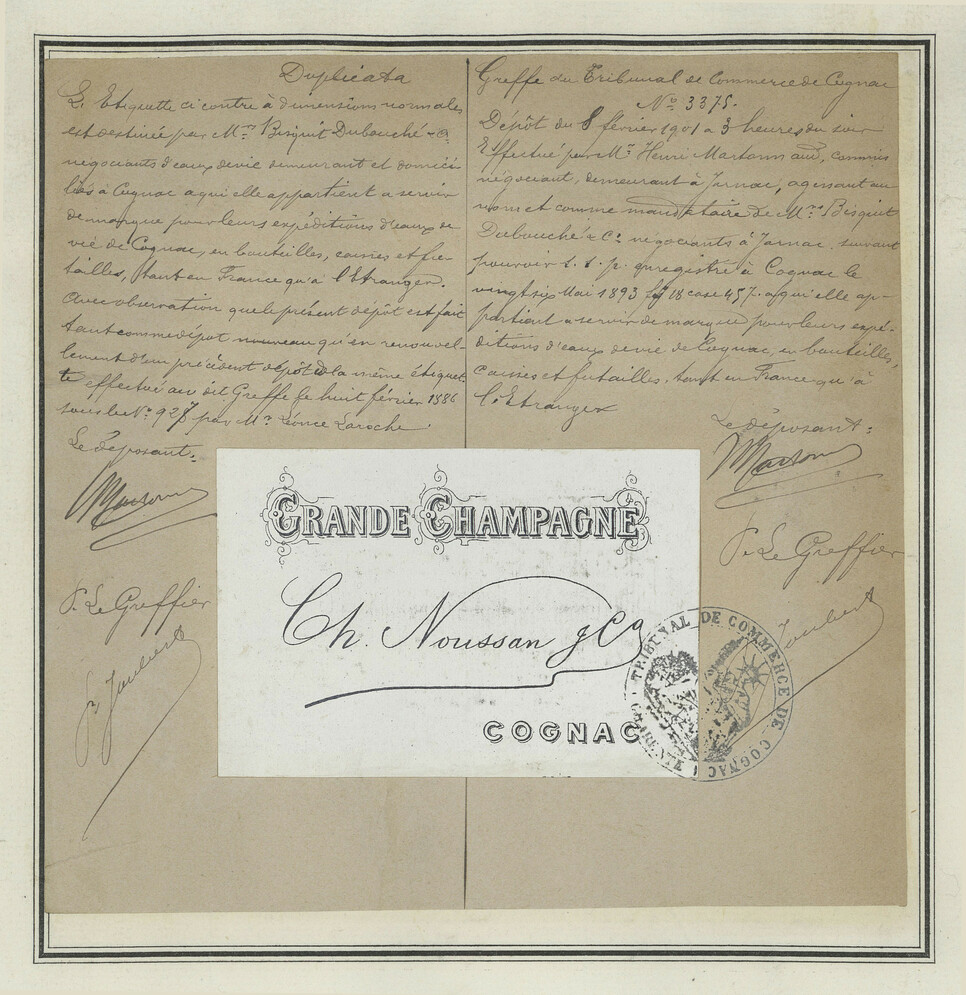 Duplicata
L'Etiquette ci contre à dimensions normales
est destinée par Mrs Bisquit Dubouché & Co
négociants d'eaux de vie demeurant et domici-
liés à Cognac a qui elle appartient a servir
de marque pour leurs expéditions d'eaux de
vie de Cognac, en bouteilles, caisses et fu-
tailles, tant en France qu'à l'Etranger.
Avec observation que le présent dépôt est fait
tant comme dépôt nouveau qu'en renouvel-
lement d'un précédent dépôt de la même étiquet-
te effectué au dit Greffe le huit février 1886
sous le No 927 par Mr Léonce Laroche.
Le déposant:
P. Le Greffier
P. Joubert
Greffe du Tribunal de Commerce de Cognac
No 3375.
Dépôt du 8 février 1901 à 3 heures du soir
Effectué par Mr Henri commis
négociant, demeurant à Jarnac, agissant au
nom et comme mandataire de Mrs Bisquit
Dubouché & Co négociants à Jarnac, suivant
pouvoir s. s. p. enregistré à Cognac le
vingt six Mai 1893 fo 18 case 457. a qui elle ap-
partient a servir de marque pour leurs expé-
ditions d'eaux de vie de Cognac, en bouteilles,
caisses et futailles, tant en France qu'à
l'Etranger
Le déposant:
P. Le Greffier
Joubert
GRANDE CHAMPAGNE
Ch. Noussan & Co
COGNAC
TRIBUNAL DE COMMERCE DE COGNAC
CHARENTE